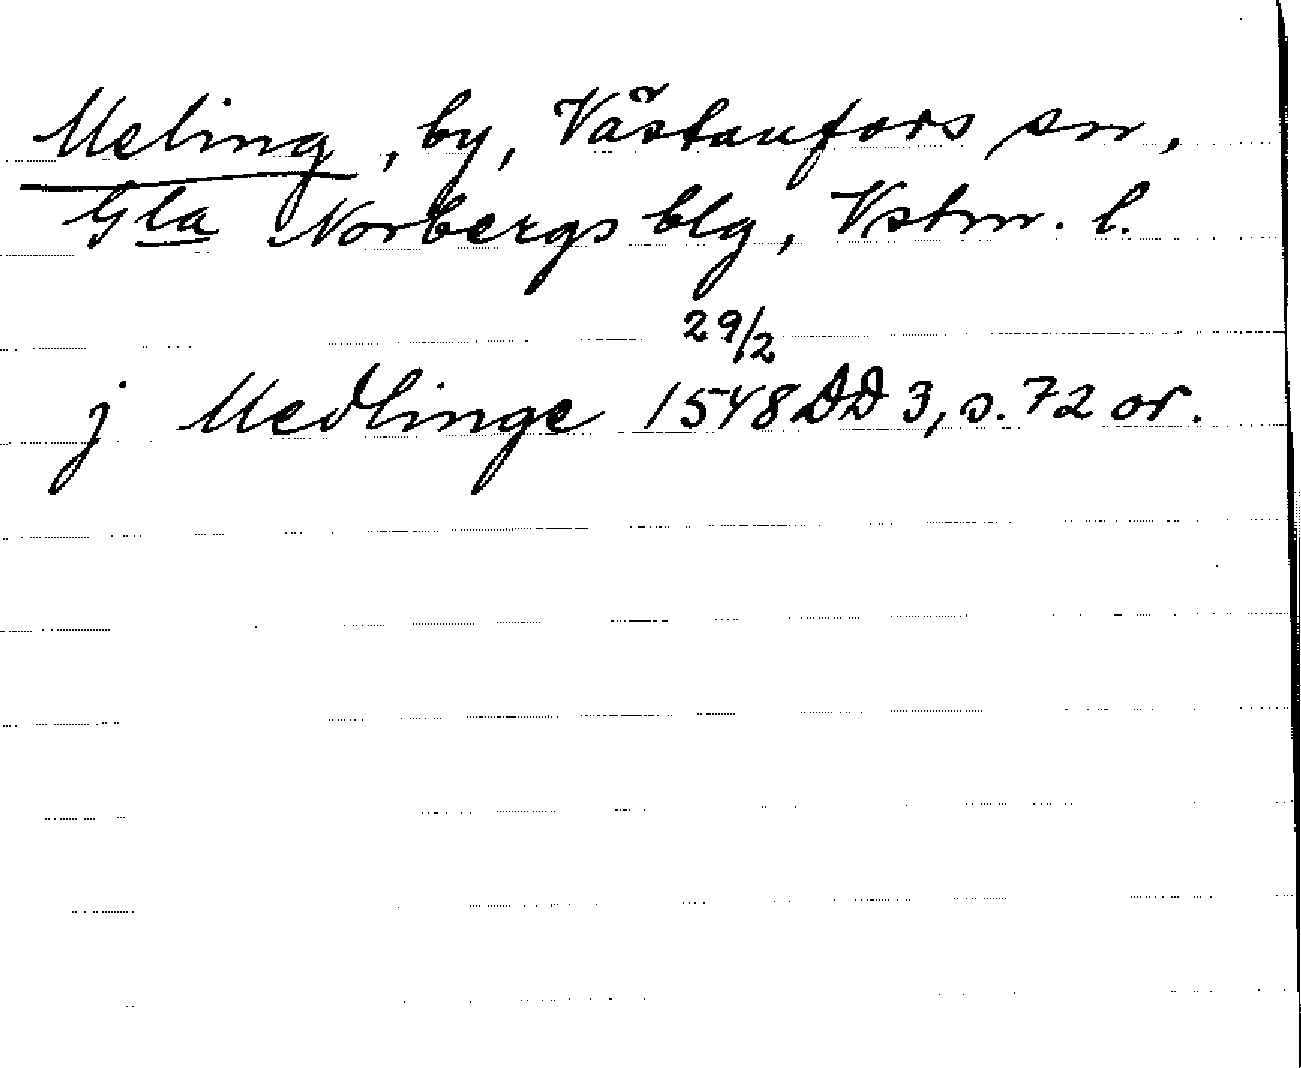 Meling, by, Västanfors sn,
Gla Norbergs blg, Vstm. l.
29/2
j Medlinge 1548 DD 3, s. 72 or.